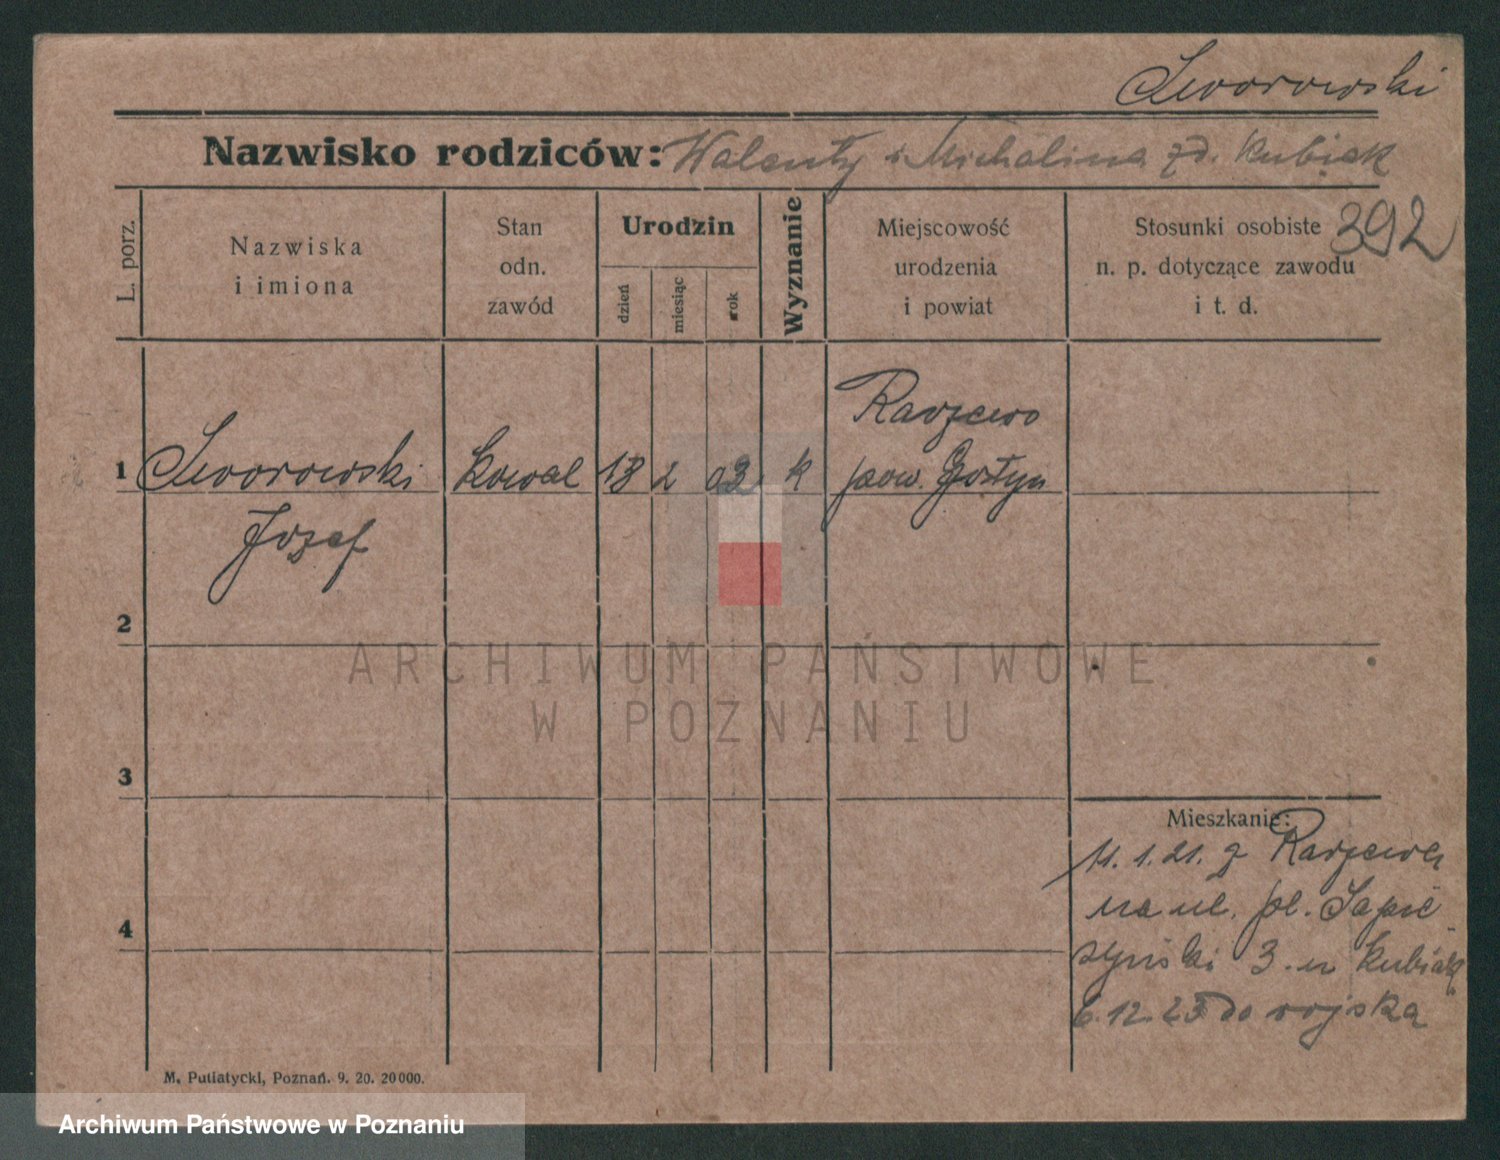 Sworowski
Nazwisko rodziców: Walenty i Michalina zd. Kubiak
392
L. porz.
Nazwiska
i imiona
Stan
odn.
zawód
Urodzin
dzień
miesiąc
rok
Wyznanie
Miejscowość
urodzenia
i powiat
Stosunki osobiste
n. p. dotyczące zawodu
i t. d.
1 Sworowski kowal 13 2 03 k
Józef
pow. Gostyn
2
3
4
Mieszkanie:
11. 1. 21. z
na ul. pl. Sapie
żyński 3. u Kubiak
6. 12. 23 do wojska
M. Putiatycki, Poznań. 9. 20. 20000.
ARCHIWUM PAŃSTWOWE
W POZNANIU
Archiwum Państwowe w Poznaniu